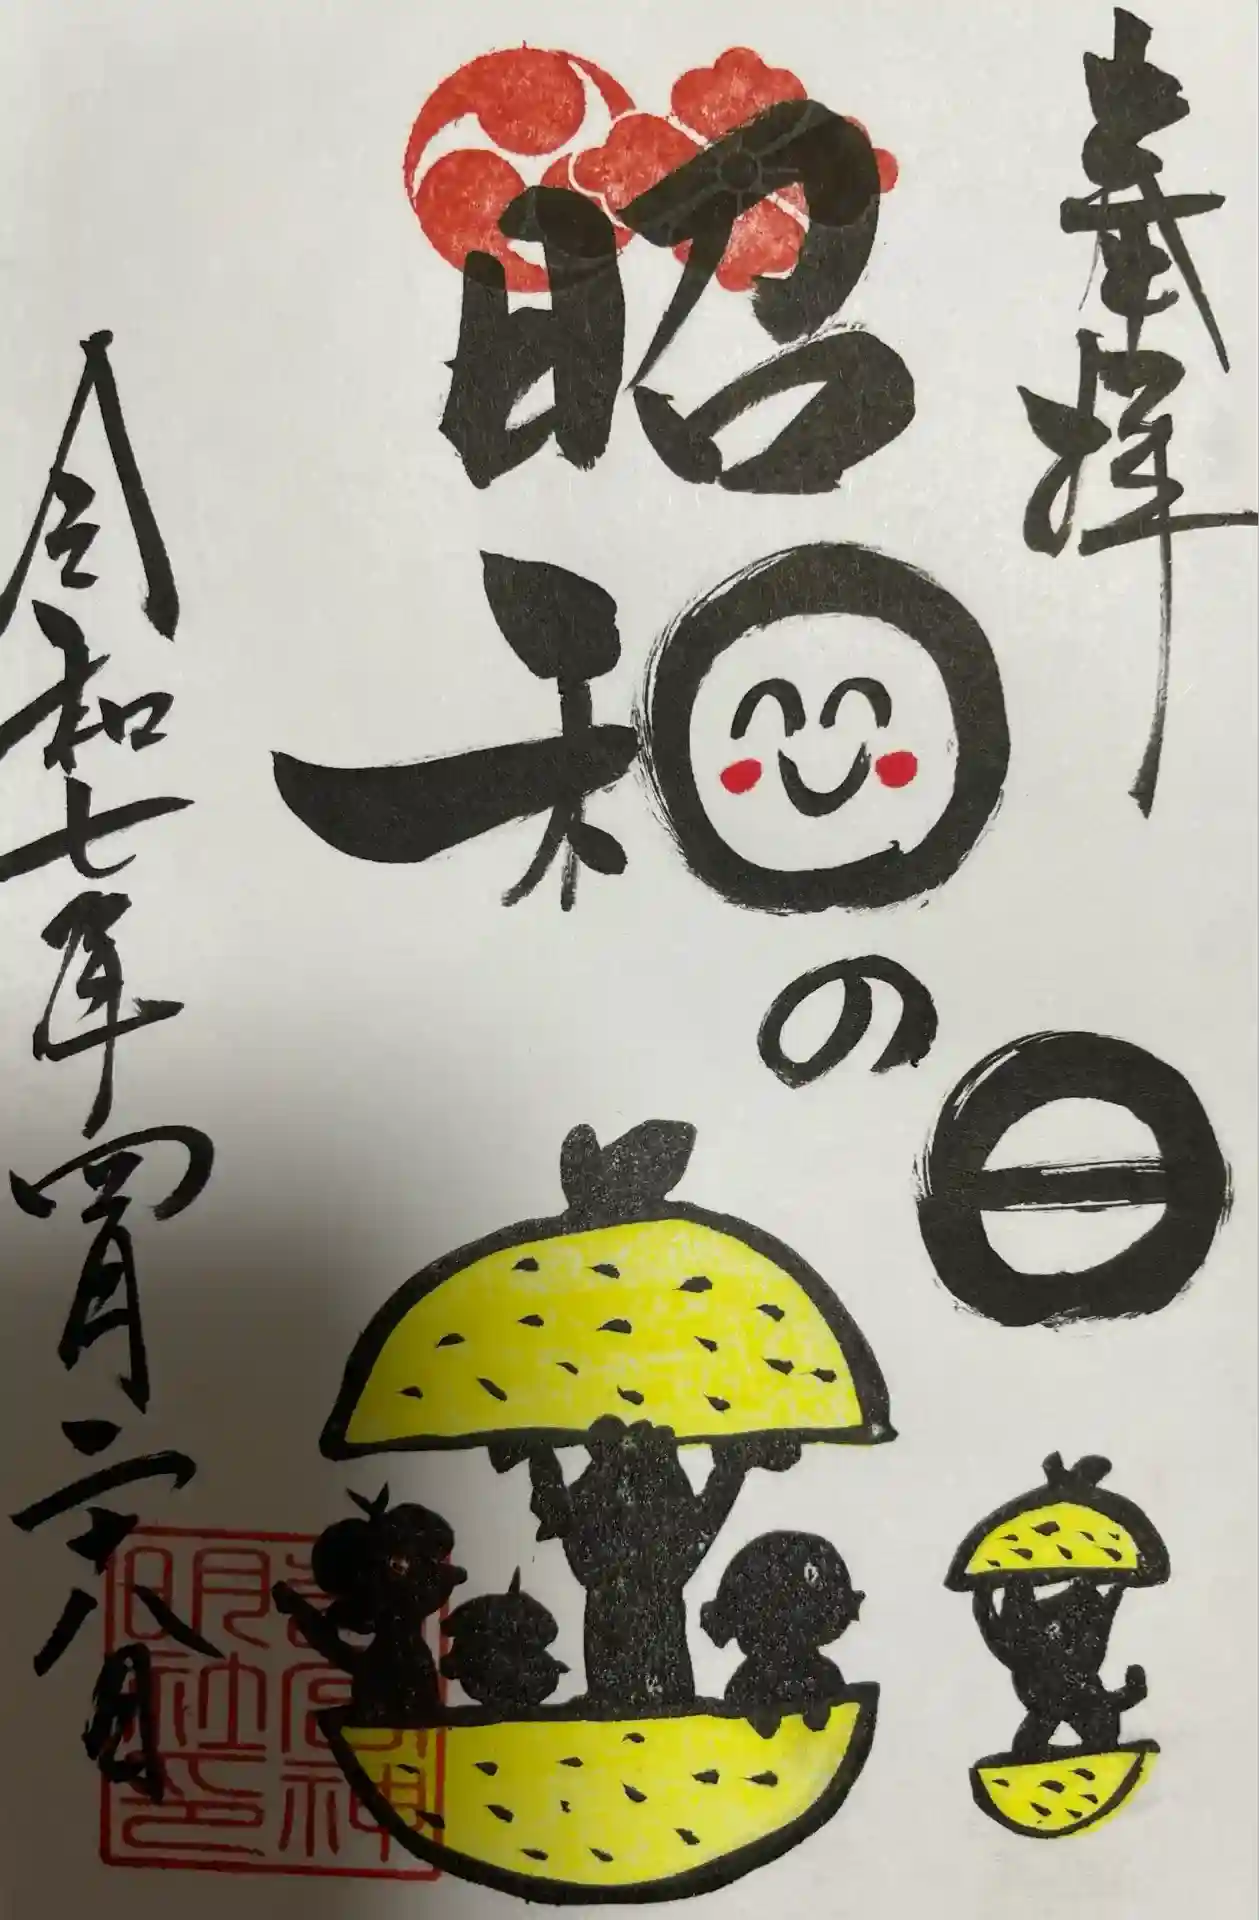 奉拝
昭和の日
令和七年四月二十八日